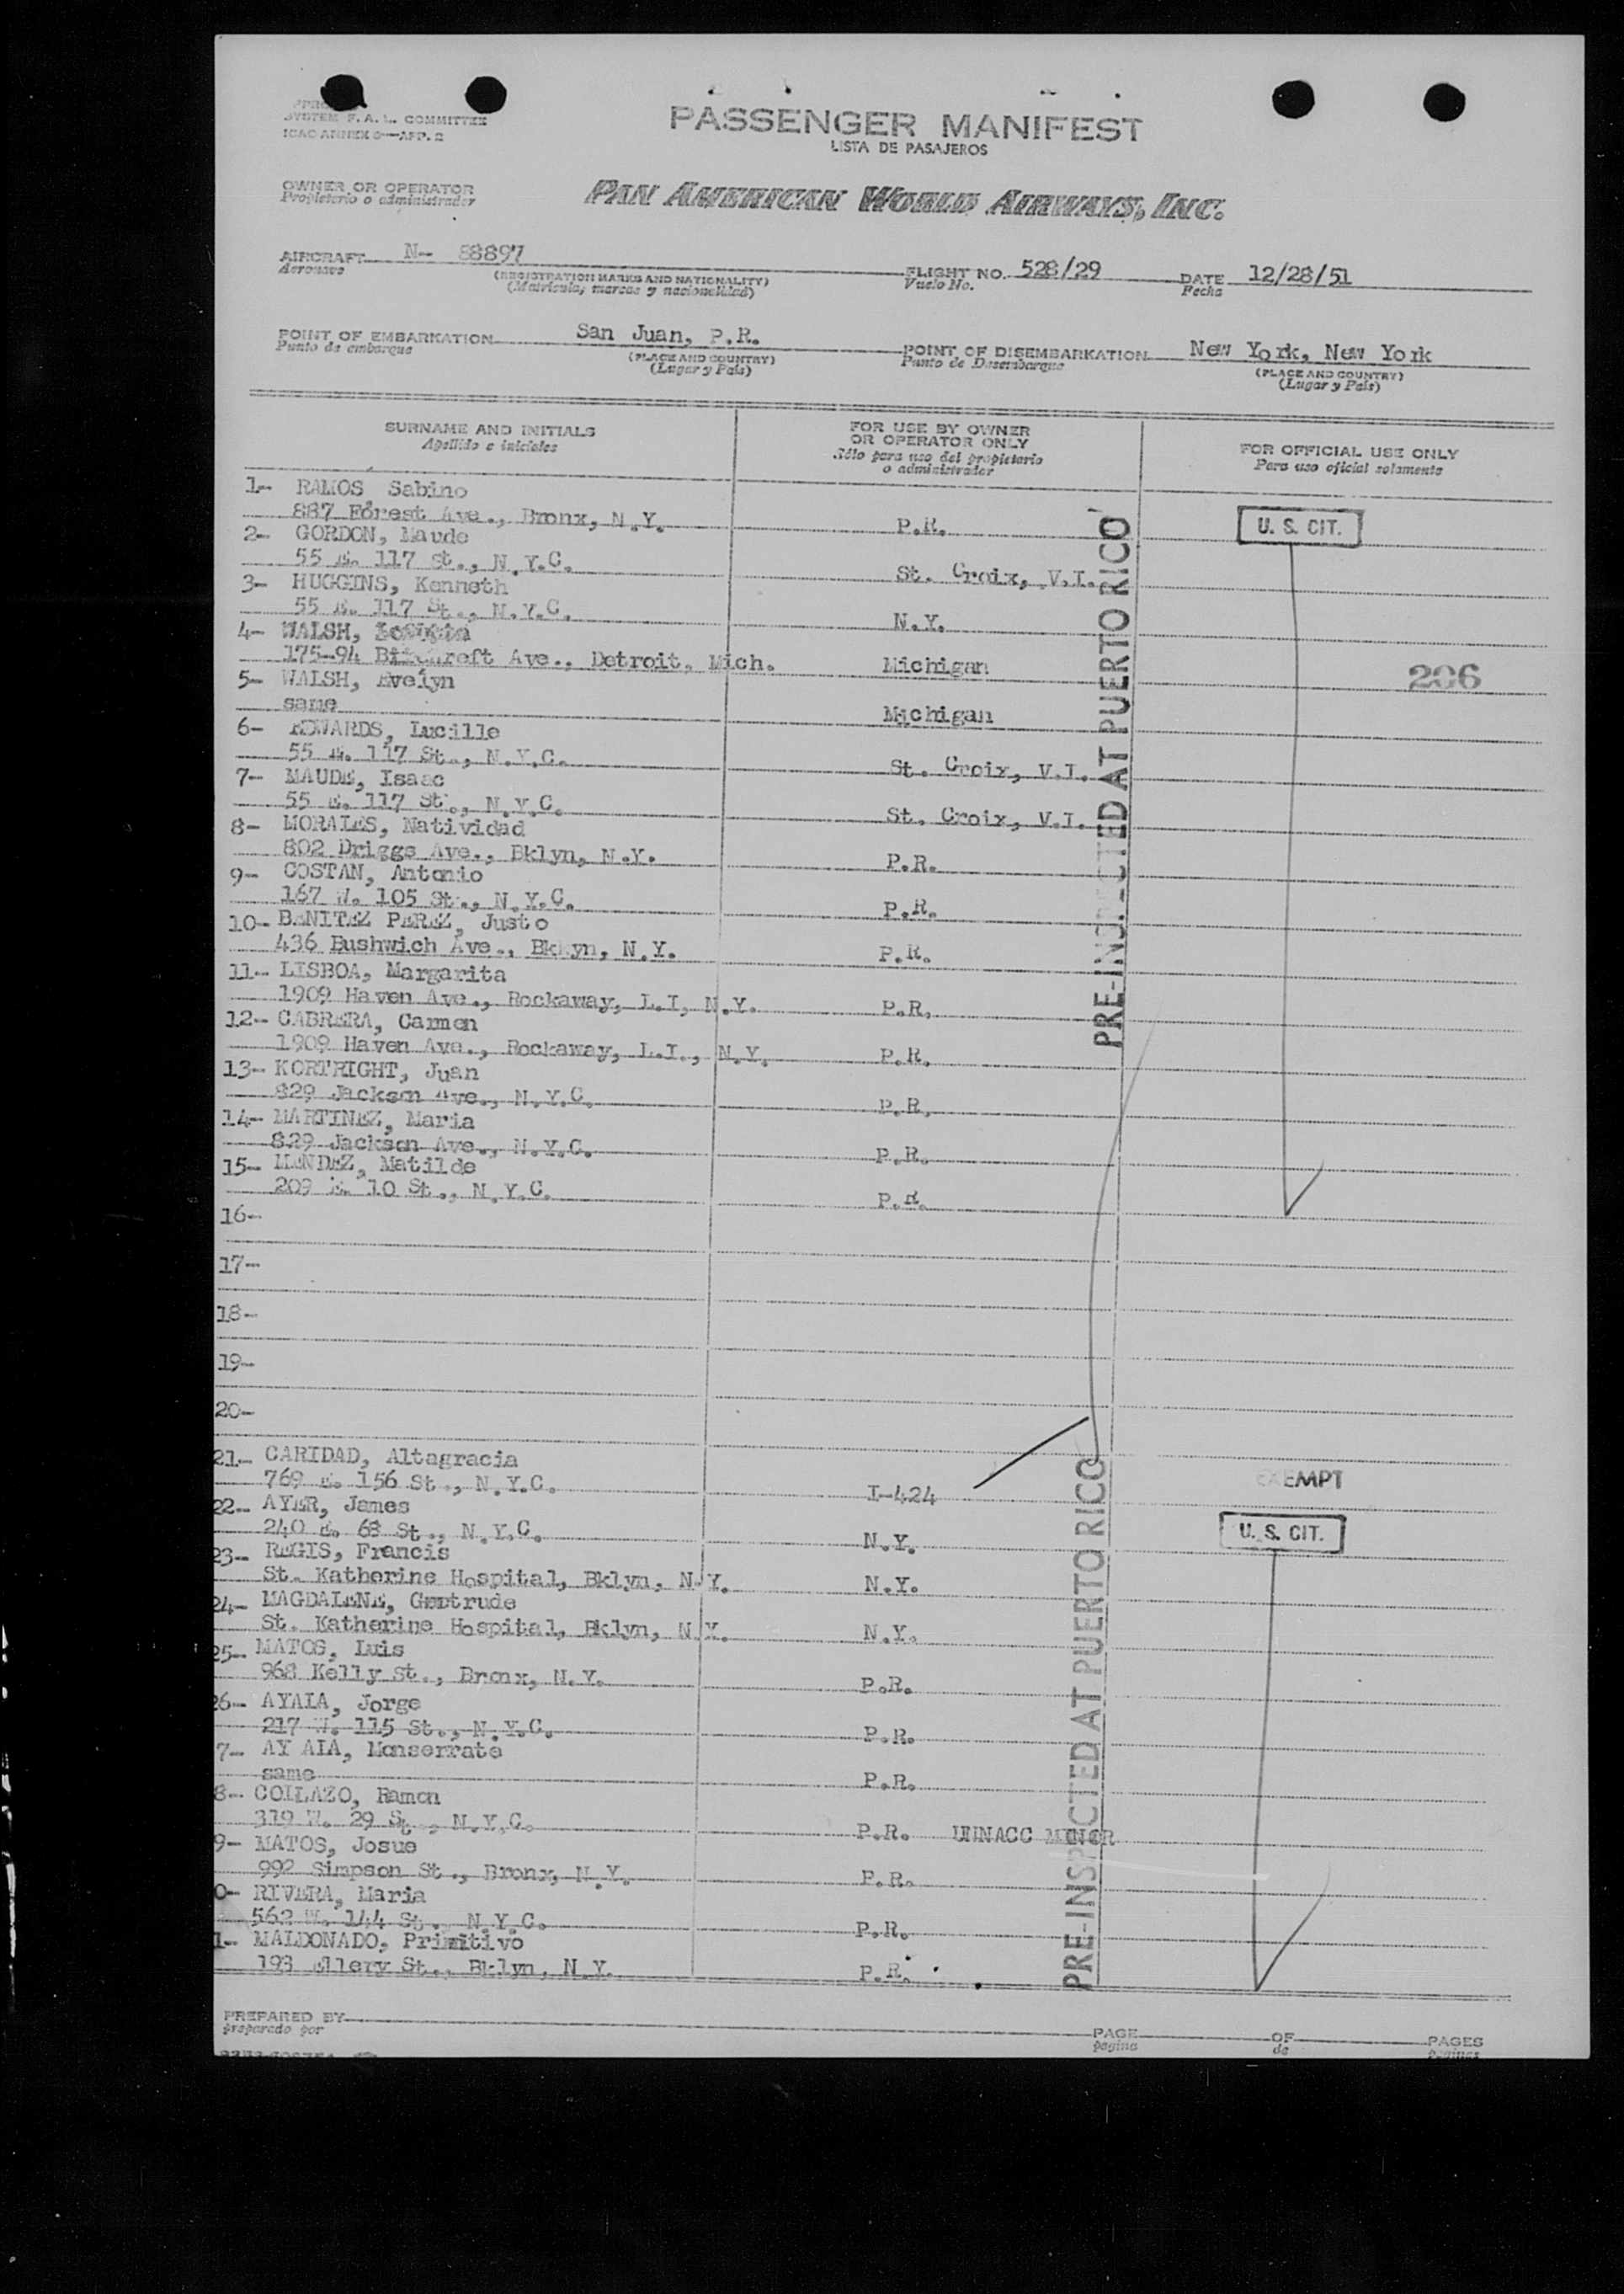 SYSTEM F. A. L. COMMITTEE
ICAO ANNEX 9—APP. 2
PASSENGER MANIFEST
LISTA DE PASAJEROS
OWNER OR OPERATOR
Propietario o administrador
PAN AMERICAN WORLD AIRWAYS, INC.
AIRCRAFT N- 88897
Aeronave
(REGISTRATION MARKS AND NATIONALITY)
(Matricula, marcas y nacionalidad)
FLIGHT NO. 528/29
Vuelo No.
DATE 12/28/51
Fecha
POINT OF EMBARKATION San Juan, P.R.
Punto de embarque
(PLACE AND COUNTRY)
(Lugar y País)
POINT OF DISEMBARKATION New York, New York
Punto de Desembarque
(PLACE AND COUNTRY)
(Lugar y País)
SURNAME AND INITIALS
Apellido e iniciales
FOR USE BY OWNER
OR OPERATOR ONLY
Sólo para uso del propietario
o administrador
FOR OFFICIAL USE ONLY
Para uso oficial solamente
1- RAMOS Sabino
887 Forest Ave., Bronx, N.Y. P.R.
U. S. CIT.
2- GORDON, Maude
55 E. 117 St., N.Y.C. St. Croix, V.I.
3- HUGGINS, Kenneth
55 E. 117 St., N.Y.C. N.Y.
4- WALSH,
175-94 Ave., Detroit, Mich. Michigan
206
5- WALSH, Evelyn
same Michigan
6- EDWARDS, Lucille
55 E. 117 St., N.Y.C. St. Croix, V.I.
7- MAUDE, Isaac
55 E. 117 St., N.Y.C. St. Croix, V.I.
8- MORALES, Natividad
802 Driggs Ave., Bklyn, N.Y. P.R.
9- COSTAN, Antonio
167 W. 105 St., N.Y.C. P.R.
10- BENITEZ PEREZ, Justo
436 Bushwich Ave., Bklyn, N.Y. P.R.
11- LISBOA, Margarita
1909 Haven Ave., Rockaway, L.I, N.Y. P.R.
12- CABRERA, Carmen
1909 Haven Ave., Rockaway, L.I., N.Y. P.R.
13- KORTRIGHT, Juan
829 Jackson Ave., N.Y.C. P.R.
14- MARTINEZ, Maria
829 Jackson Ave., N.Y.C. P.R.
15- MENDEZ, Matilde
209 E. 10 St., N.Y.C. P.R.
PRE-INSPECTED AT PUERTO RICO
16-
17-
18-
19-
20-
21- CARIDAD, Altagracia
769 E. 156 St., N.Y.C. I-424 EXEMPT
22- AYER, James
240 E. 68 St., N.Y.C. N.Y.
U. S. CIT.
23- REGIS, Francis
St. Katherine Hospital, Bklyn, N.Y. N.Y.
24- MAGDALENE, Gertrude
St. Katherine Hospital, Bklyn, N.Y. N.Y.
25- MATOS, Luis
968 Kelly St., Bronx, N.Y. P.R.
26- AYALA, Jorge
217 W. 115 St., N.Y.C. P.R.
7- AY ALA, Monserrate
same P.R.
8- COLLAZO, Ramon
319 W. 29 St., N.Y.C. P.R. UNNACC MINOR
9- MATOS, Josue
992 Simpson St., Bronx, N.Y. P.R.
0- RIVERA, Maria
562 W. 144 St., N.Y.C. P.R.
1- MALDONADO, Primitivo
193 Ellery St., Bklyn, N.Y. P.R.
PRE-INSPECTED AT PUERTO RICO
PREPARED BY
preparado por
PAGE
pagina
OF
de
PAGES
paginas